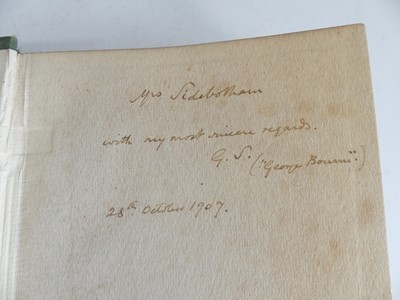 Mrs Sidebotham
with my most sincere regards.
G. S.
("George Bourne".)
28th October 1907.